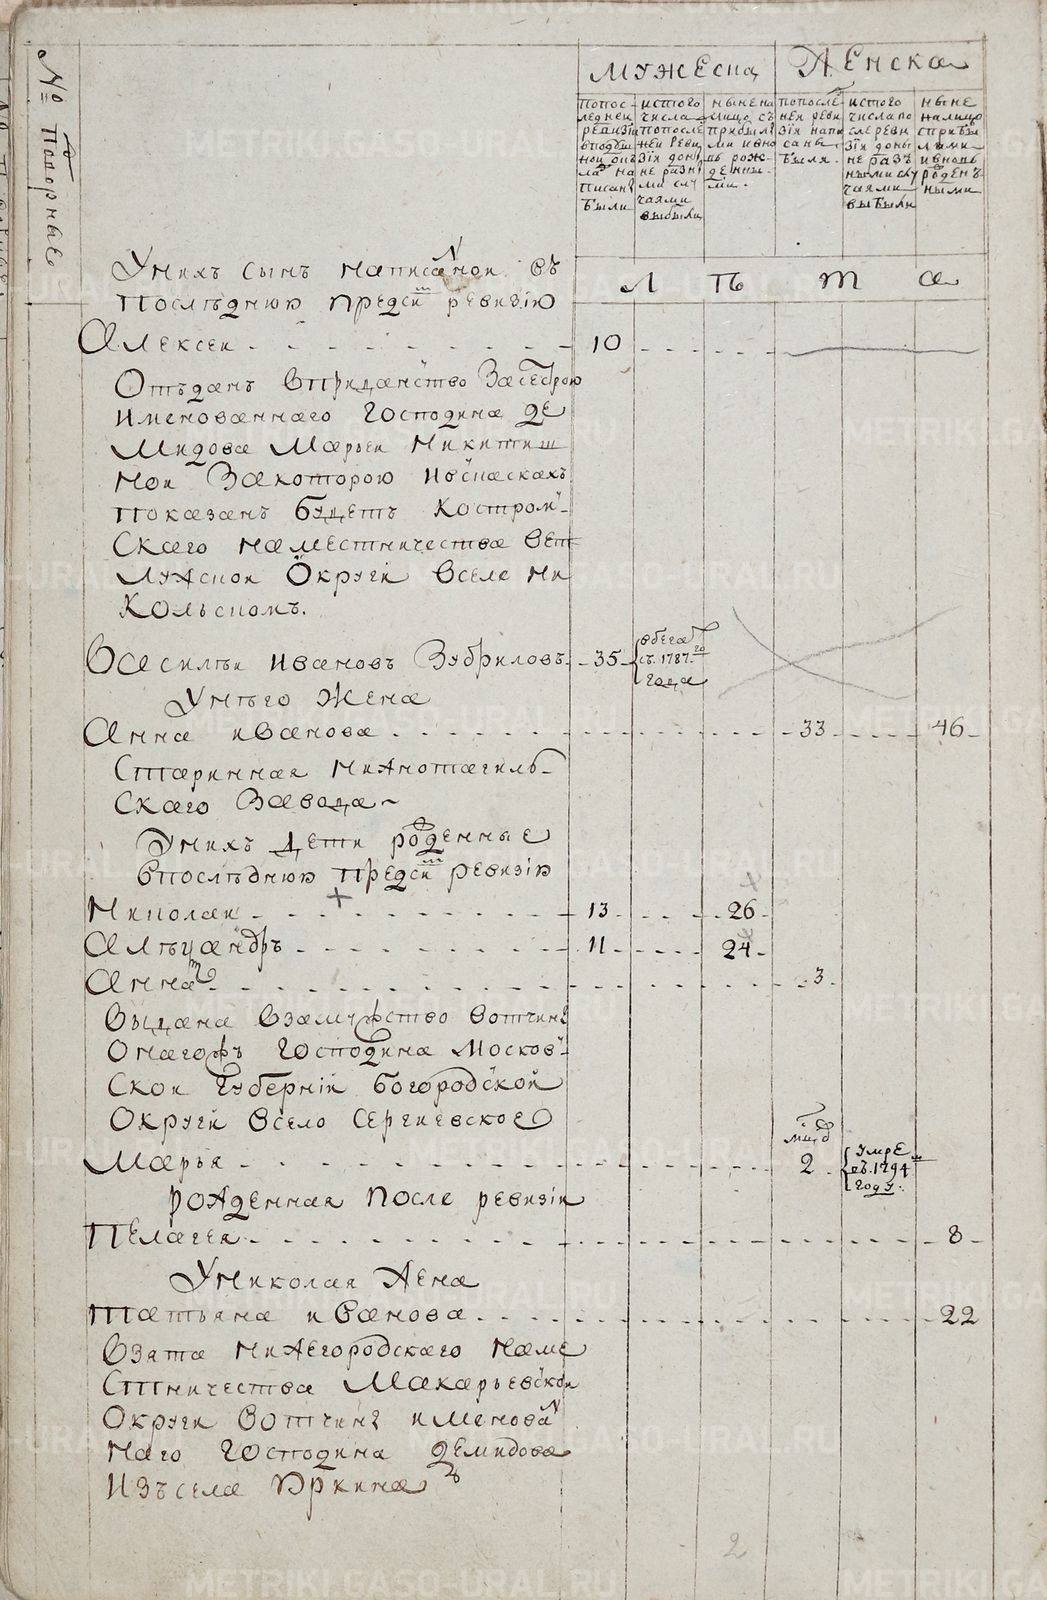 № подворные
МУЖЕСКА
ЖЕНСКА
попос-
леднеи
ревизiи
вподуш
ной окъ
ладъ на
писаны
были
истого
числа
попослѣ
ней реви
зiи доны
не разны
ми слу
чаями
выбыли
ныне на
лицо съ
прибыл
ми ивно
вь рож-
денны-
ми.
попослѣ
ней реви
зiи напи
саны
были.
истого
числа по
сле реви
зiи доны
не разъ
ными слу
чаями
выбыли
ныне
налицо
сприбы
лыми
ивновь
рожден
ными
Л ѣ т а
Унихъ сынъ написанной въ
Послѣднюю предсию ревизiю
Алексеи 10
Отъданъ вприданство Засестрою
именованнаго господина де
мидова Марьеи Никитиш
ной Закоторою ивсказкахъ
показанъ будетъ Костром-
скаго наместничества вет
лужской округи вселе ни
кольскомъ.
Василеи ивановъ Зубриловъ 35 вбегахъ
съ. 1787го
года
Унѣго жена
Анна иванова 33 46
Старинная нижнотагиль-
скаго завода
Унихъ дети рожденные
впослѣднюю предсию ревизiю
Николаи 13 26
Алѣѯандръ 11 24
Анна 3
выдана взамужство вотчин
онагожъ господина Москов-
скои губернiи богородской
округи всело сергиевское
мцъ
Марья 2 умре
въ.1794м
году.
рожденная после ревизiи
Пелагея 8
Униколая жена
татьяна иванова 22
взята нижегородскаго наме
стничества Макарьевскои
округи вотчины именован
наго господина демидова
изъсела Юркина
2
METRIKI.GASO-URAL.RU